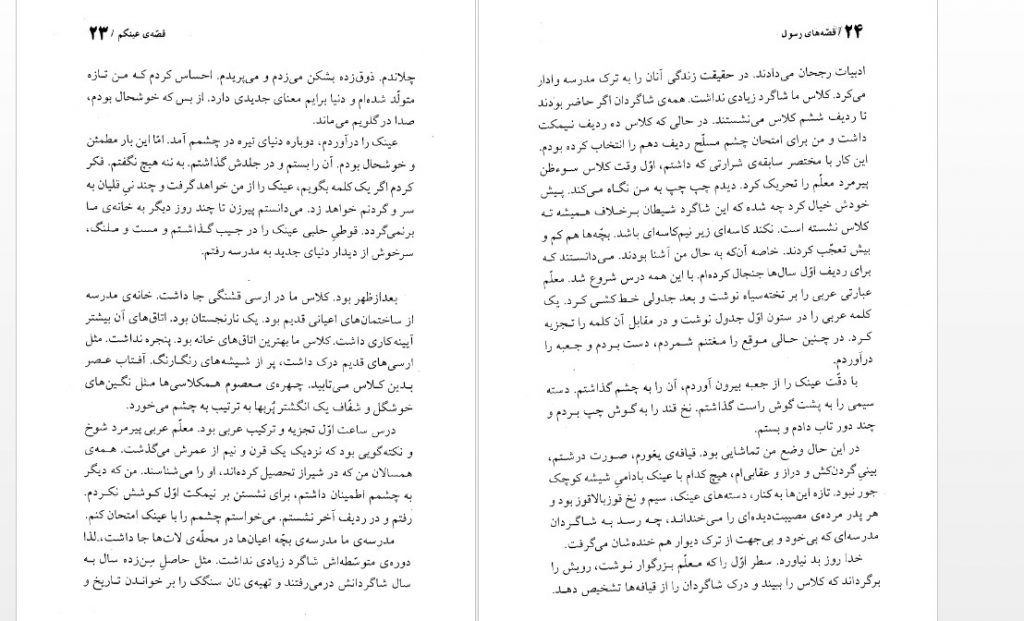 ۲۳ / قصّه‌ی عینکم
چلاندم. ذوق‌زده بشکن می‌زدم و می‌پریدم. احساس کردم که من تازه
متولّد شده‌ام و دنیا برایم معنای جدیدی دارد. از بس که خوشحال بودم،
صدا در گلویم می‌ماند.
عینک را درآوردم، دوباره دنیای تیره در چشمم آمد. امّا این بار مطمئن
و خوشحال بودم. آن را بستم و در جلدش گذاشتم. به ننه هیچ نگفتم. فکر
کردم اگر یک کلمه بگویم، عینک را از من خواهد گرفت و چند نیِ قلیان به
سر و گردنم خواهد زد. می‌دانستم پیرزن تا چند روز دیگر به خانه‌ی ما
برنمی‌گردد. قوطیِ حلبی عینک را در جیب گذاشتم و مست و ملنگ،
سرخوش از دیدار دنیای جدید به مدرسه رفتم.
بعدازظهر بود. کلاس ما در ارسی قشنگی جا داشت. خانه‌ی مدرسه
از ساختمان‌های اعیانی قدیم بود. یک نارنجستان بود. اتاق‌های آن بیشتر
آیینه‌کاری داشت. کلاس ما بهترین اتاق‌های خانه بود. پنجره نداشت. مثل
ارسی‌های قدیم درک داشت، پر از شیشه‌های رنگارنگ. آفتاب عصر
بدین کلاس می‌تابید. چهره‌ی معصوم همکلاسی‌ها مثل نگین‌های
خوشگل و شفّاف یک انگشتر پُربها به ترتیب به چشم می‌خورد.
درس ساعت اوّل تجزیه و ترکیب عربی بود. معلّم عربی پیرمرد شوخ
و نکته‌گویی بود که نزدیک یک قرن و نیم از عمرش می‌گذشت. همه‌ی
همسالان من که در شیراز تحصیل کرده‌اند، او را می‌شناسند. من که دیگر
به چشمم اطمینان داشتم، برای نشستن بر نیمکت اوّل کوشش نکردم.
رفتم و در ردیف آخر نشستم. می‌خواستم چشمم را با عینک امتحان کنم.
مدرسه‌ی ما مدرسه‌ی بچّه اعیان‌ها در محلّه‌ی لات‌ها جا داشت، لذا
دوره‌ی متوسّطه‌اش شاگرد زیادی نداشت. مثل حاصلِ سِن‌زده سال به
سال شاگردانش درمی‌رفتند و تهیه‌ی نان سنگک را بر خواندن تاریخ و
۲۴ / قصّه‌های رسول
ادبیات رجحان می‌دادند. در حقیقت زندگی آنان را به ترک مدرسه وادار
می‌کرد. کلاس ما شاگرد زیادی نداشت. همه‌ی شاگردان اگر حاضر بودند
تا ردیف ششم کلاس می‌نشستند. در حالی که کلاس ده ردیف نیمکت
داشت و من برای امتحان چشم مسلّح ردیف دهم را انتخاب کرده بودم.
این کار با مختصر سابقه‌ی شرارتی که داشتم، اوّل وقت کلاس سوءظن
پیرمرد معلّم را تحریک کرد. دیدم چپ چپ به من نگاه می‌کند. پیش
خودش خیال کرد چه شده که این شاگرد شیطان برخلاف همیشه ته
کلاس نشسته است. نکند کاسه‌ای زیر نیم‌کاسه‌ای باشد. بچّه‌ها هم کم و
بیش تعجّب کردند. خاصه آن‌که به حال من آشنا بودند. می‌دانستند که
برای ردیف اوّل سال‌ها جنجال کرده‌ام. با این همه درس شروع شد. معلّم
عبارتی عربی را بر تخته‌سیاه نوشت و بعد جدولی خط‌کشی کرد. یک
کلمه عربی را در ستون اوّل جدول نوشت و در مقابل آن کلمه را تجزیه
کرد. در چنین حالی موقع را مغتنم شمردم، دست بردم و جعبه را
درآوردم.
با دقّت عینک را از جعبه بیرون آوردم، آن را به چشم گذاشتم. دسته
سیمی را به پشت گوش راست گذاشتم. نخ قند را به گوش چپ بردم و
چند دور تاب دادم و بستم.
در این حال وضع من تماشایی بود. قیافه‌ی یغورم، صورت درشتم،
بینیِ گردن‌کش و دراز و عقابی‌ام، هیچ کدام با عینک بادامیِ شیشه کوچک
جور نبود. تازه این‌ها به‌کنار، دسته‌های عینک، سیم و نخ قوزبالاقوز بود و
هر پدر مرده‌ی مصیبت‌دیده‌ای را می‌خنداند، چه رسد به شاگردان
مدرسه‌ای که بی‌خود و بی‌جهت از ترک دیوار هم خنده‌شان می‌گرفت.
خدا روز بد نیاورد. سطر اوّل را که معلّم بزرگوار نوشت، رویش را
برگرداند که کلاس را ببیند و درک شاگردان را از قیافه‌ها تشخیص دهد.